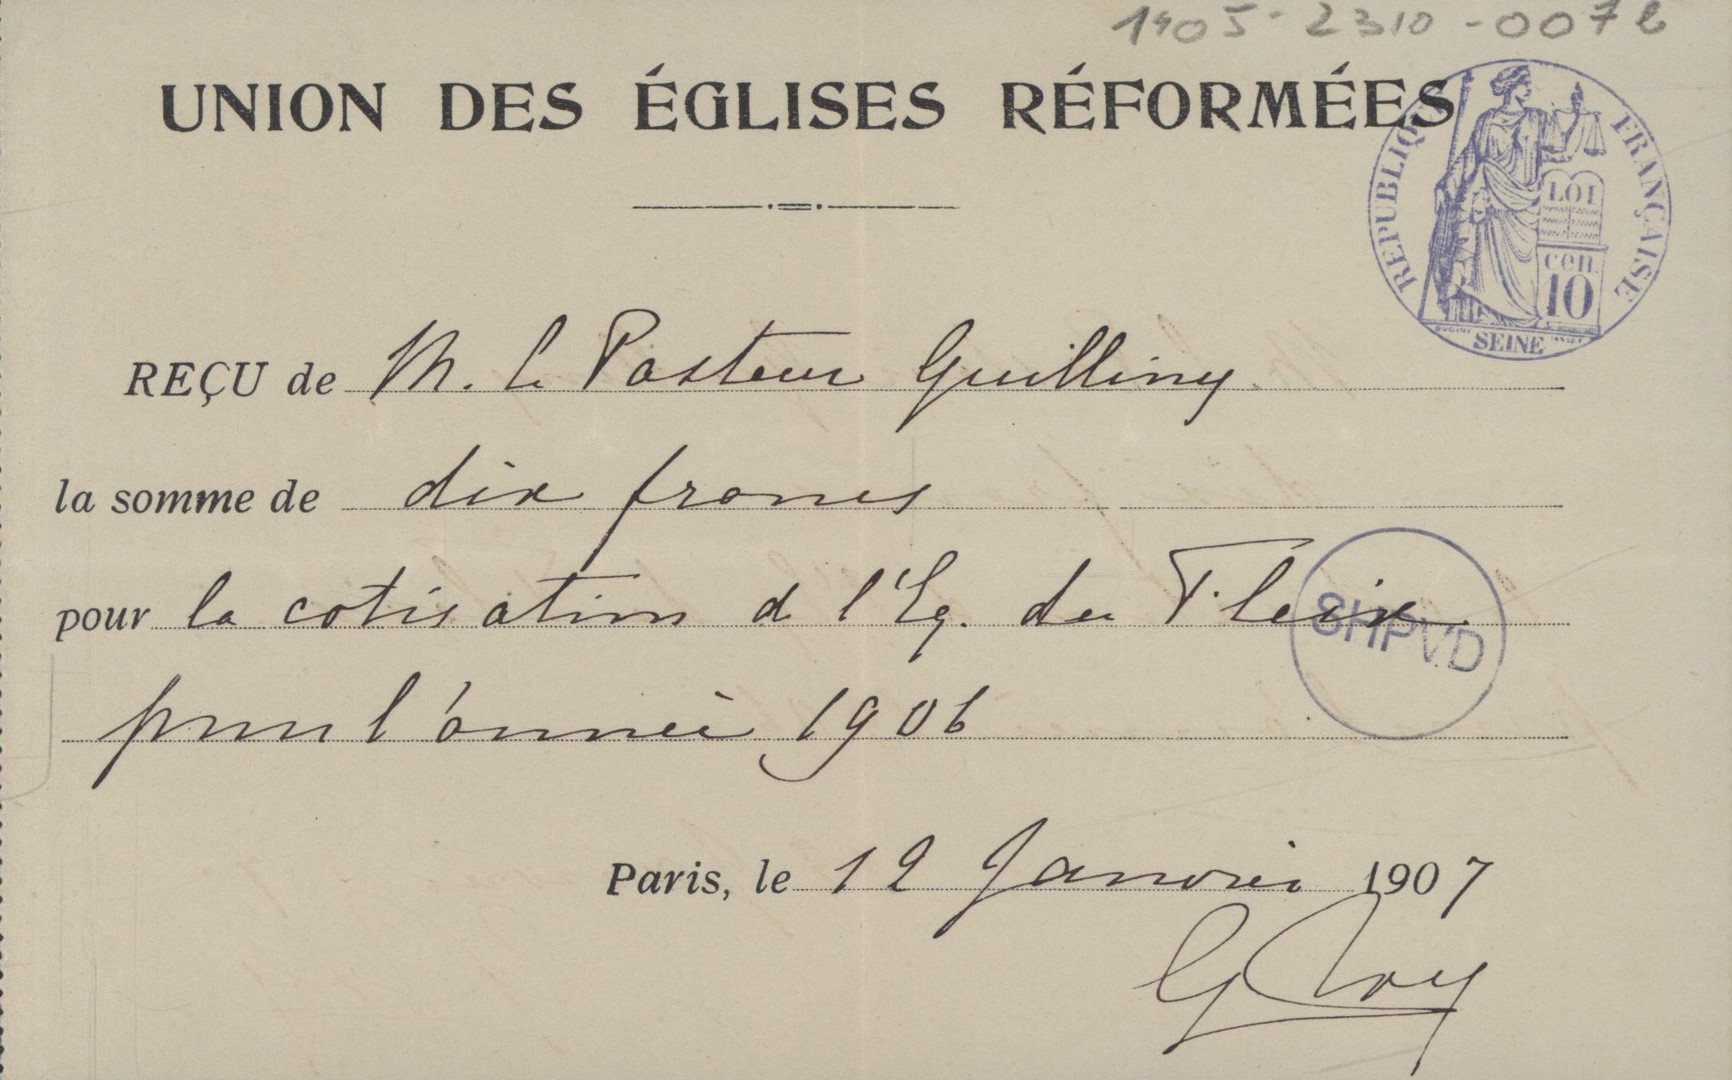 1905-2310-007b
UNION DES ÉGLISES RÉFORMÉES
RÉPUBLIQUE FRANÇAISE
LOI
cen.
10
SEINE
REÇU de M. le Pasteur Guilliny
la somme de dix francs
pour la cotisation d l'Eg. du Fleix
SHPVD
pour l'année 1906
Paris, le 12 Janvier 1907